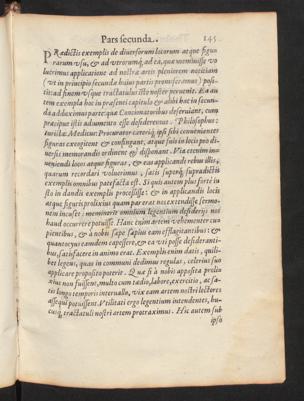 Pars secunda..
145
PRædictis exemplis de diuersorum locorum atque figu
rarum vsu, & ad vtrorumq; ad ea, quæ meminisse vo
luerimus applicatione ad nostræ artis pleniorem notitiam
(vt in principio secundæ huius partis promiseramus) posi-
tis: ad finem vsque tractatulus iste noster peruenit. Ea au
tem exempla hoc in præsenti capitulo & alibi hoc in secun-
da adduximus parte: quæ Concionatoribus deseruiant, cum
præcipuè istis adiumento esse desideremus. Philosophus:
Iurista: Medicus: Procurator cæteriq; ipsi sibi conuenientes
figuras excogitent & confingant, atque suis in locis pro di-
uersis memorandis ordinent & disponant. Via etenim in-
ueniendi locos atque figuras, & eas applicandi rebus illis,
quarum recordari voluerimus, satis superq; supradictis
exemplis omnibus patefacta est. Si quis autem plus forte iu
sto in dandis exemplis processisse: & in applicandis locis
atque figuris prolixius quam par erat nos extendisse sermo-
nem incuset: meminerit omnium legentium desiderijs nos
haud occurrere potuisse. Hanc enim artem vehementer cu-
pientibus, & à nobis sæpe sæpius eam efflagitantibus: &
quantocyus eamdem capessere, et ea vti posse desideranti-
bus, satisfacere in animo erat. Exemplis enim datis, quili-
bet legens, quas in communi dedimus regulas, celerius suo
applicare proposito poterit. Quæ si à nobis apposita proli-
xius non fuissent, multo cum tædio, labore, exercitio, ac sa-
tis longo temporis interuallo, vix eam artem nostri lectores
assequi potuissent. Vtilitati ergo legentium intendentes, hu-
cusq; tractatuli nostri artem protraximus. Hic autem sub
ipsis